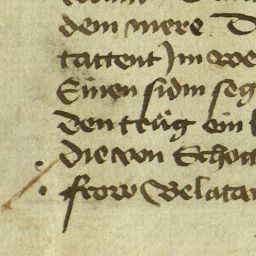 dem mere D
tattent Jn we
Einen sidin seg
den trůg ein
die von Schot
frow Belakan